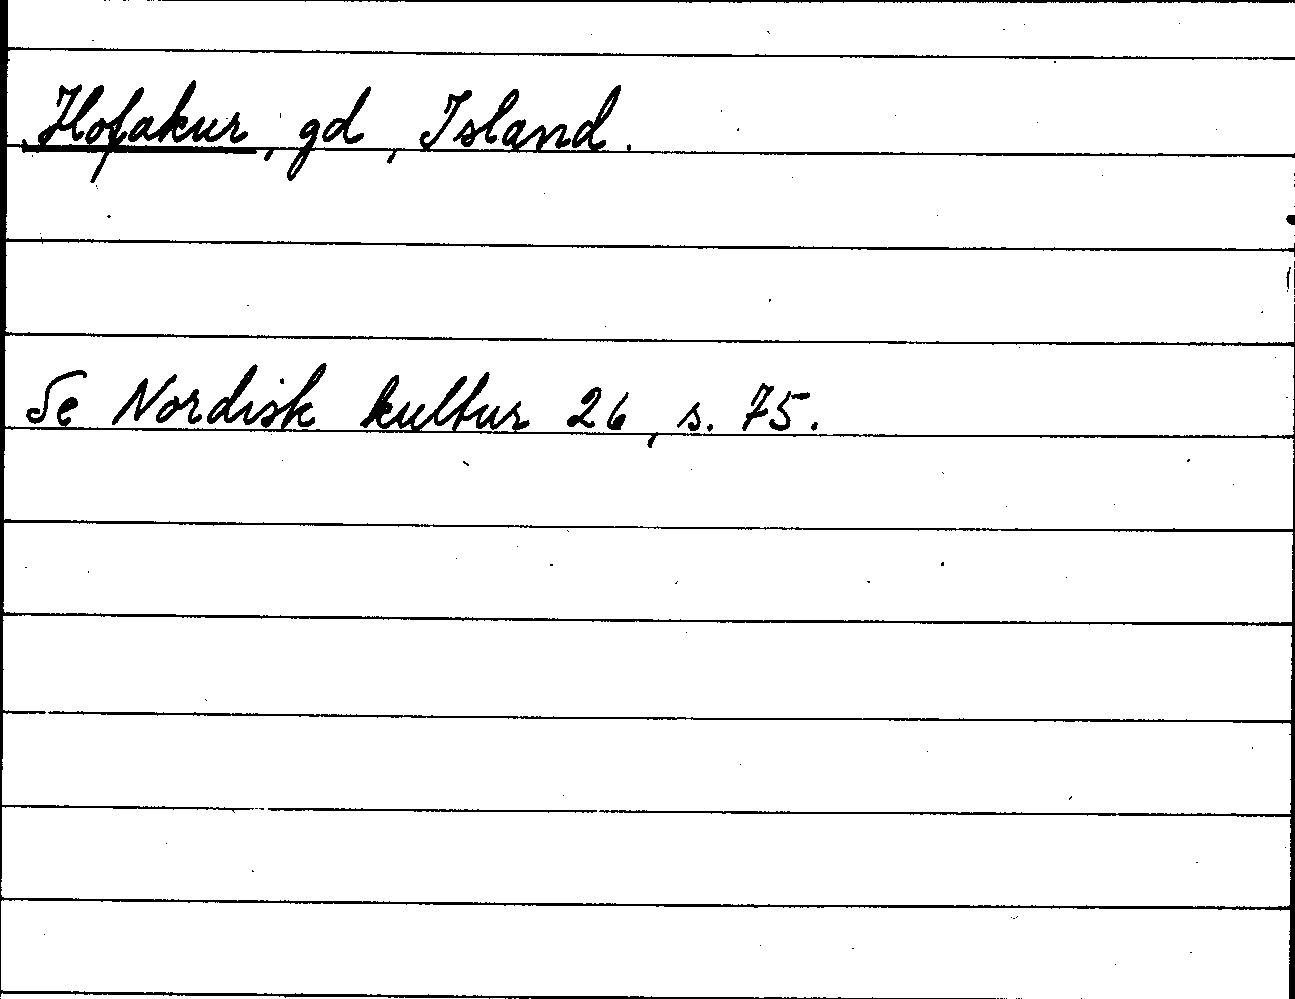 Hofakur, gd, Island.
Se Nordisk kultur 26, s. 75.